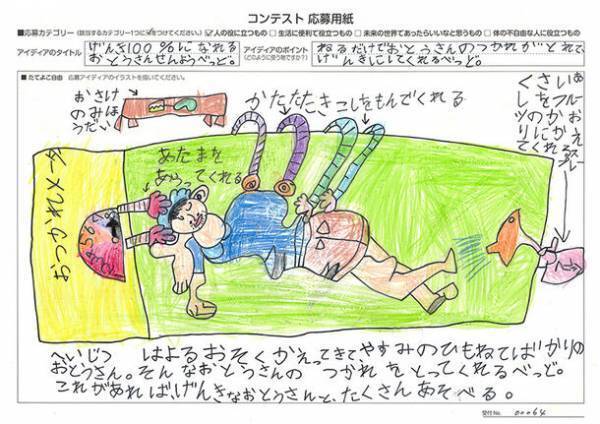 コンテスト 応募用紙
■応募カテゴリー（該当するカテゴリー1つに✓をつけてください。） ☑人の役に立つもの □生活に便利で役立つもの □未来の世界であったらいいなと思うもの □体の不自由な人に役立つもの
アイディアのタイトル
げんき100%になれる
おとうさんせんようべっど。
アイディアのポイント
(どのように使う物ですか?)
ねるだけでおとうさんのつかれがとれて、
げんきにしてくれるべっど。
■たてよこ自由 応募アイディアのイラストを描いてください。
おさけ
のみほ
うだい
かたたたき
こしをもんでくれる
あたまを
あらってくれる
おつかれメータ
くさいあしを
フルーツの
かおりにか
えてくれる
へいじつ はよるおそくかえってきてやすみのひもねてばかりの
おとうさん。そんなおとうさんの つかれをとってくれるべっど。
これがあれば、げんきなおとうさんと、たくさんあそべる。
受付No. 00064